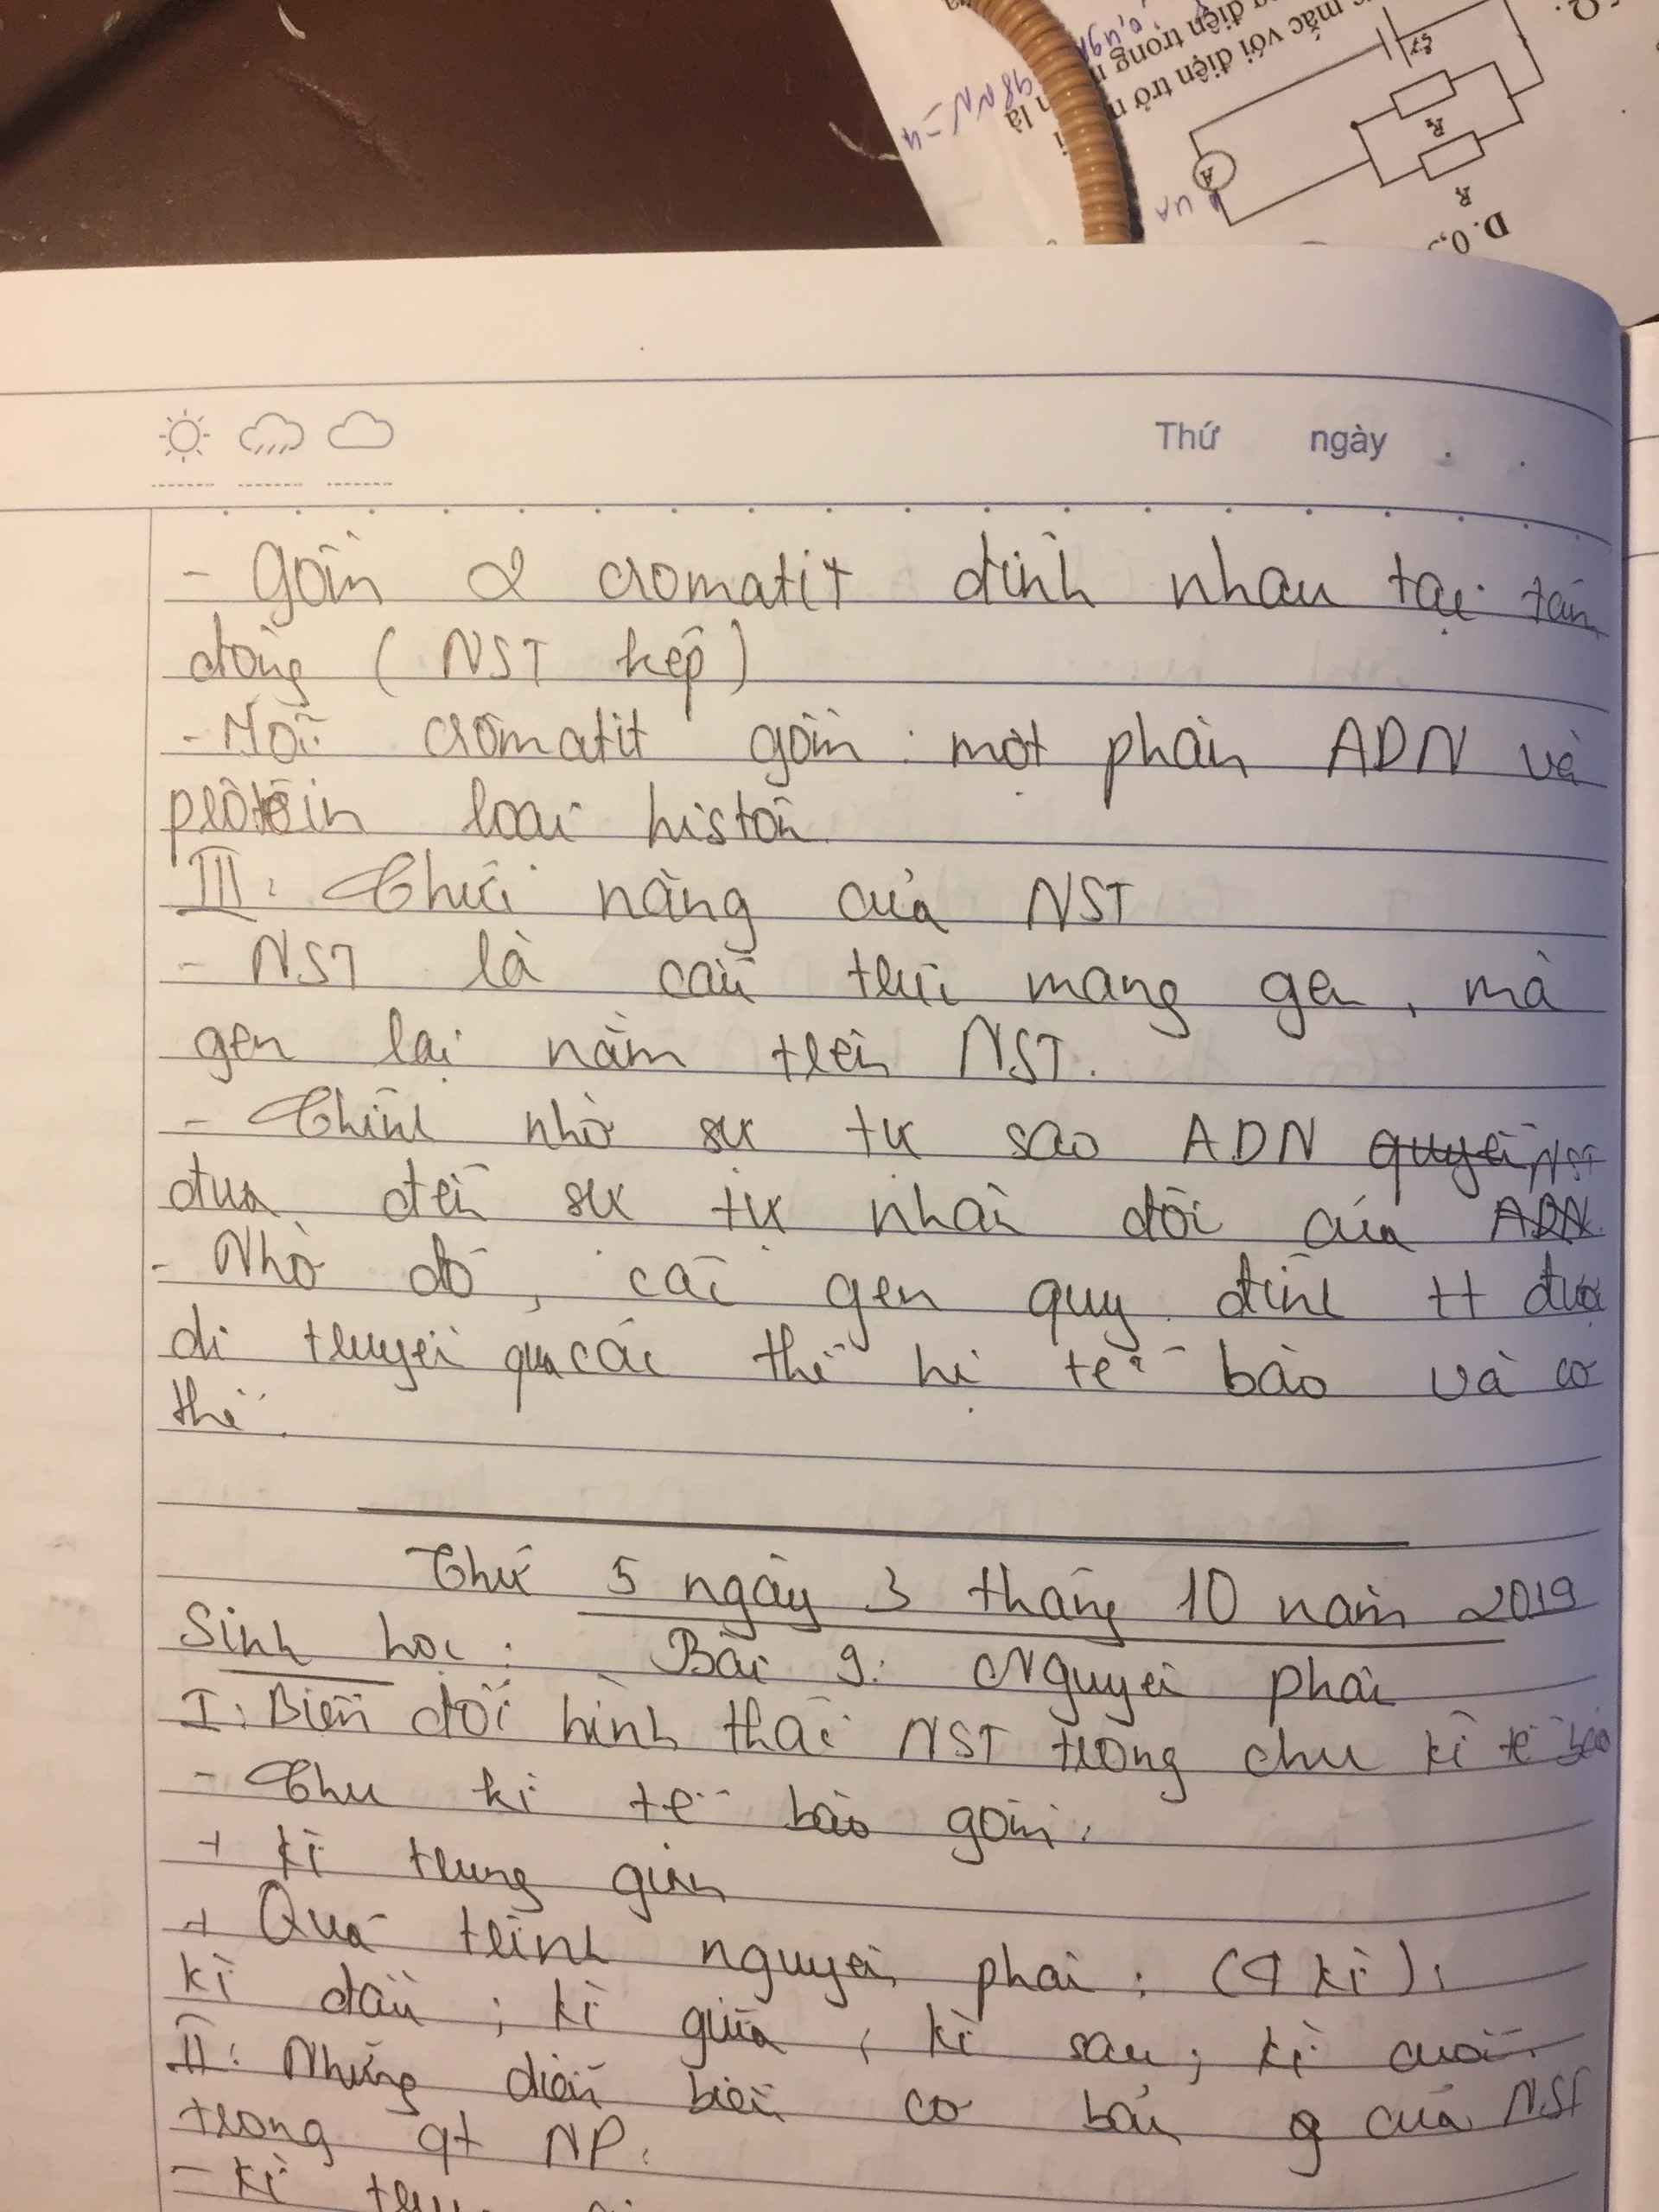 mắc với điện trở
điện trong
là
R
A
D. 0,
Thứ ngày
- Gồm 2 cromatit dính nhau tại tâm
động ( NST kép )
- Mỗi crômatit gồm : một phân ADN và
prôtêin loại histôn
III: Chức năng của NST
- NST là cấu trúc mang gen , mà
gen lại nằm trên NST.
- Chính nhờ sự tự sao ADN quyế NST
đưa đến sự tự nhân đôi của ADN.
- Nhờ đó , các gen quy định tt được
di truyền qua các thế hệ tế bào và cơ
thể .
Thứ 5 ngày 3 tháng 10 năm 2019
Sinh học : Bài 9: Nguyên phân
I: Biến đổi hình thái NST trong chu kì tế bào
- Chu kì tế bào gồm :
+ kì trung gian
+ Quá trình nguyên phân : (4 kì) :
kì đầu ; kì giữa ; kì sau ; kì cuối.
II: Những diễn biến cơ bản g của NST
trong qt NP :
- kì